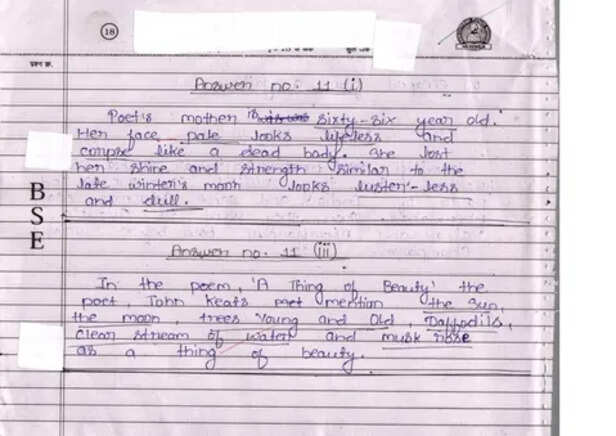 18
प्रश्न क्र.
Answer no. 11 (i)
Poet's mother is sixty-six year old.
Her face pale looks lifeless and
corpse like a dead body. She lost
her shine and strength similar to the
late winter's moon looks luster-less
and dull.
B
S
E
Answer no. 11 (iii)
In the poem, 'A Thing of Beauty' the
poet, John Keats met mention the sun,
the moon, trees Young and Old, Daffodils,
clear stream of water and musk rose
as a thing of beauty.